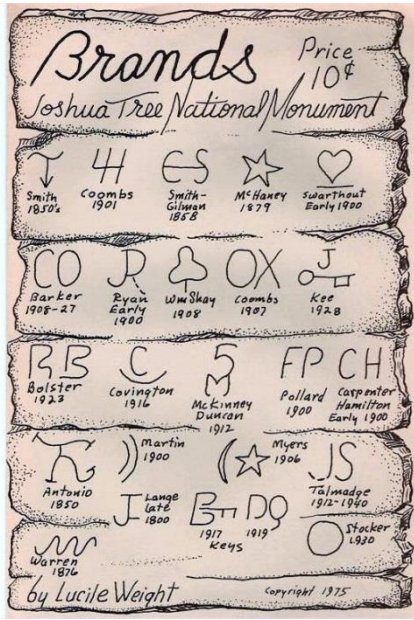 Brands
Price
10¢
Joshua Tree National Monument
Smith
1850's
Coombs
1901
ES
Smith-
Gilman
1858
McHaney
1879
Swarthout
Early 1900
CO
Barker
1908-27
JR
Ryan
Early
1900
Wm Shay
1908
OX
Coombs
1907
J
Kee
1928
BB
Bolster
1923
C
Covington
1916
5
M
McKinney
Duncan
1912
FP
Pollard
1900
CH
Carpenter
Hamilton
Early 1900
Antonio
1850
Martin
1900
Myers
1906
JS
Talmadge
1912-1940
J
Lange
Late
1800
1917
DQ
1919
Keys
Stocker
1930
Warren
1876
by Lucile Weight
Copyright 1975